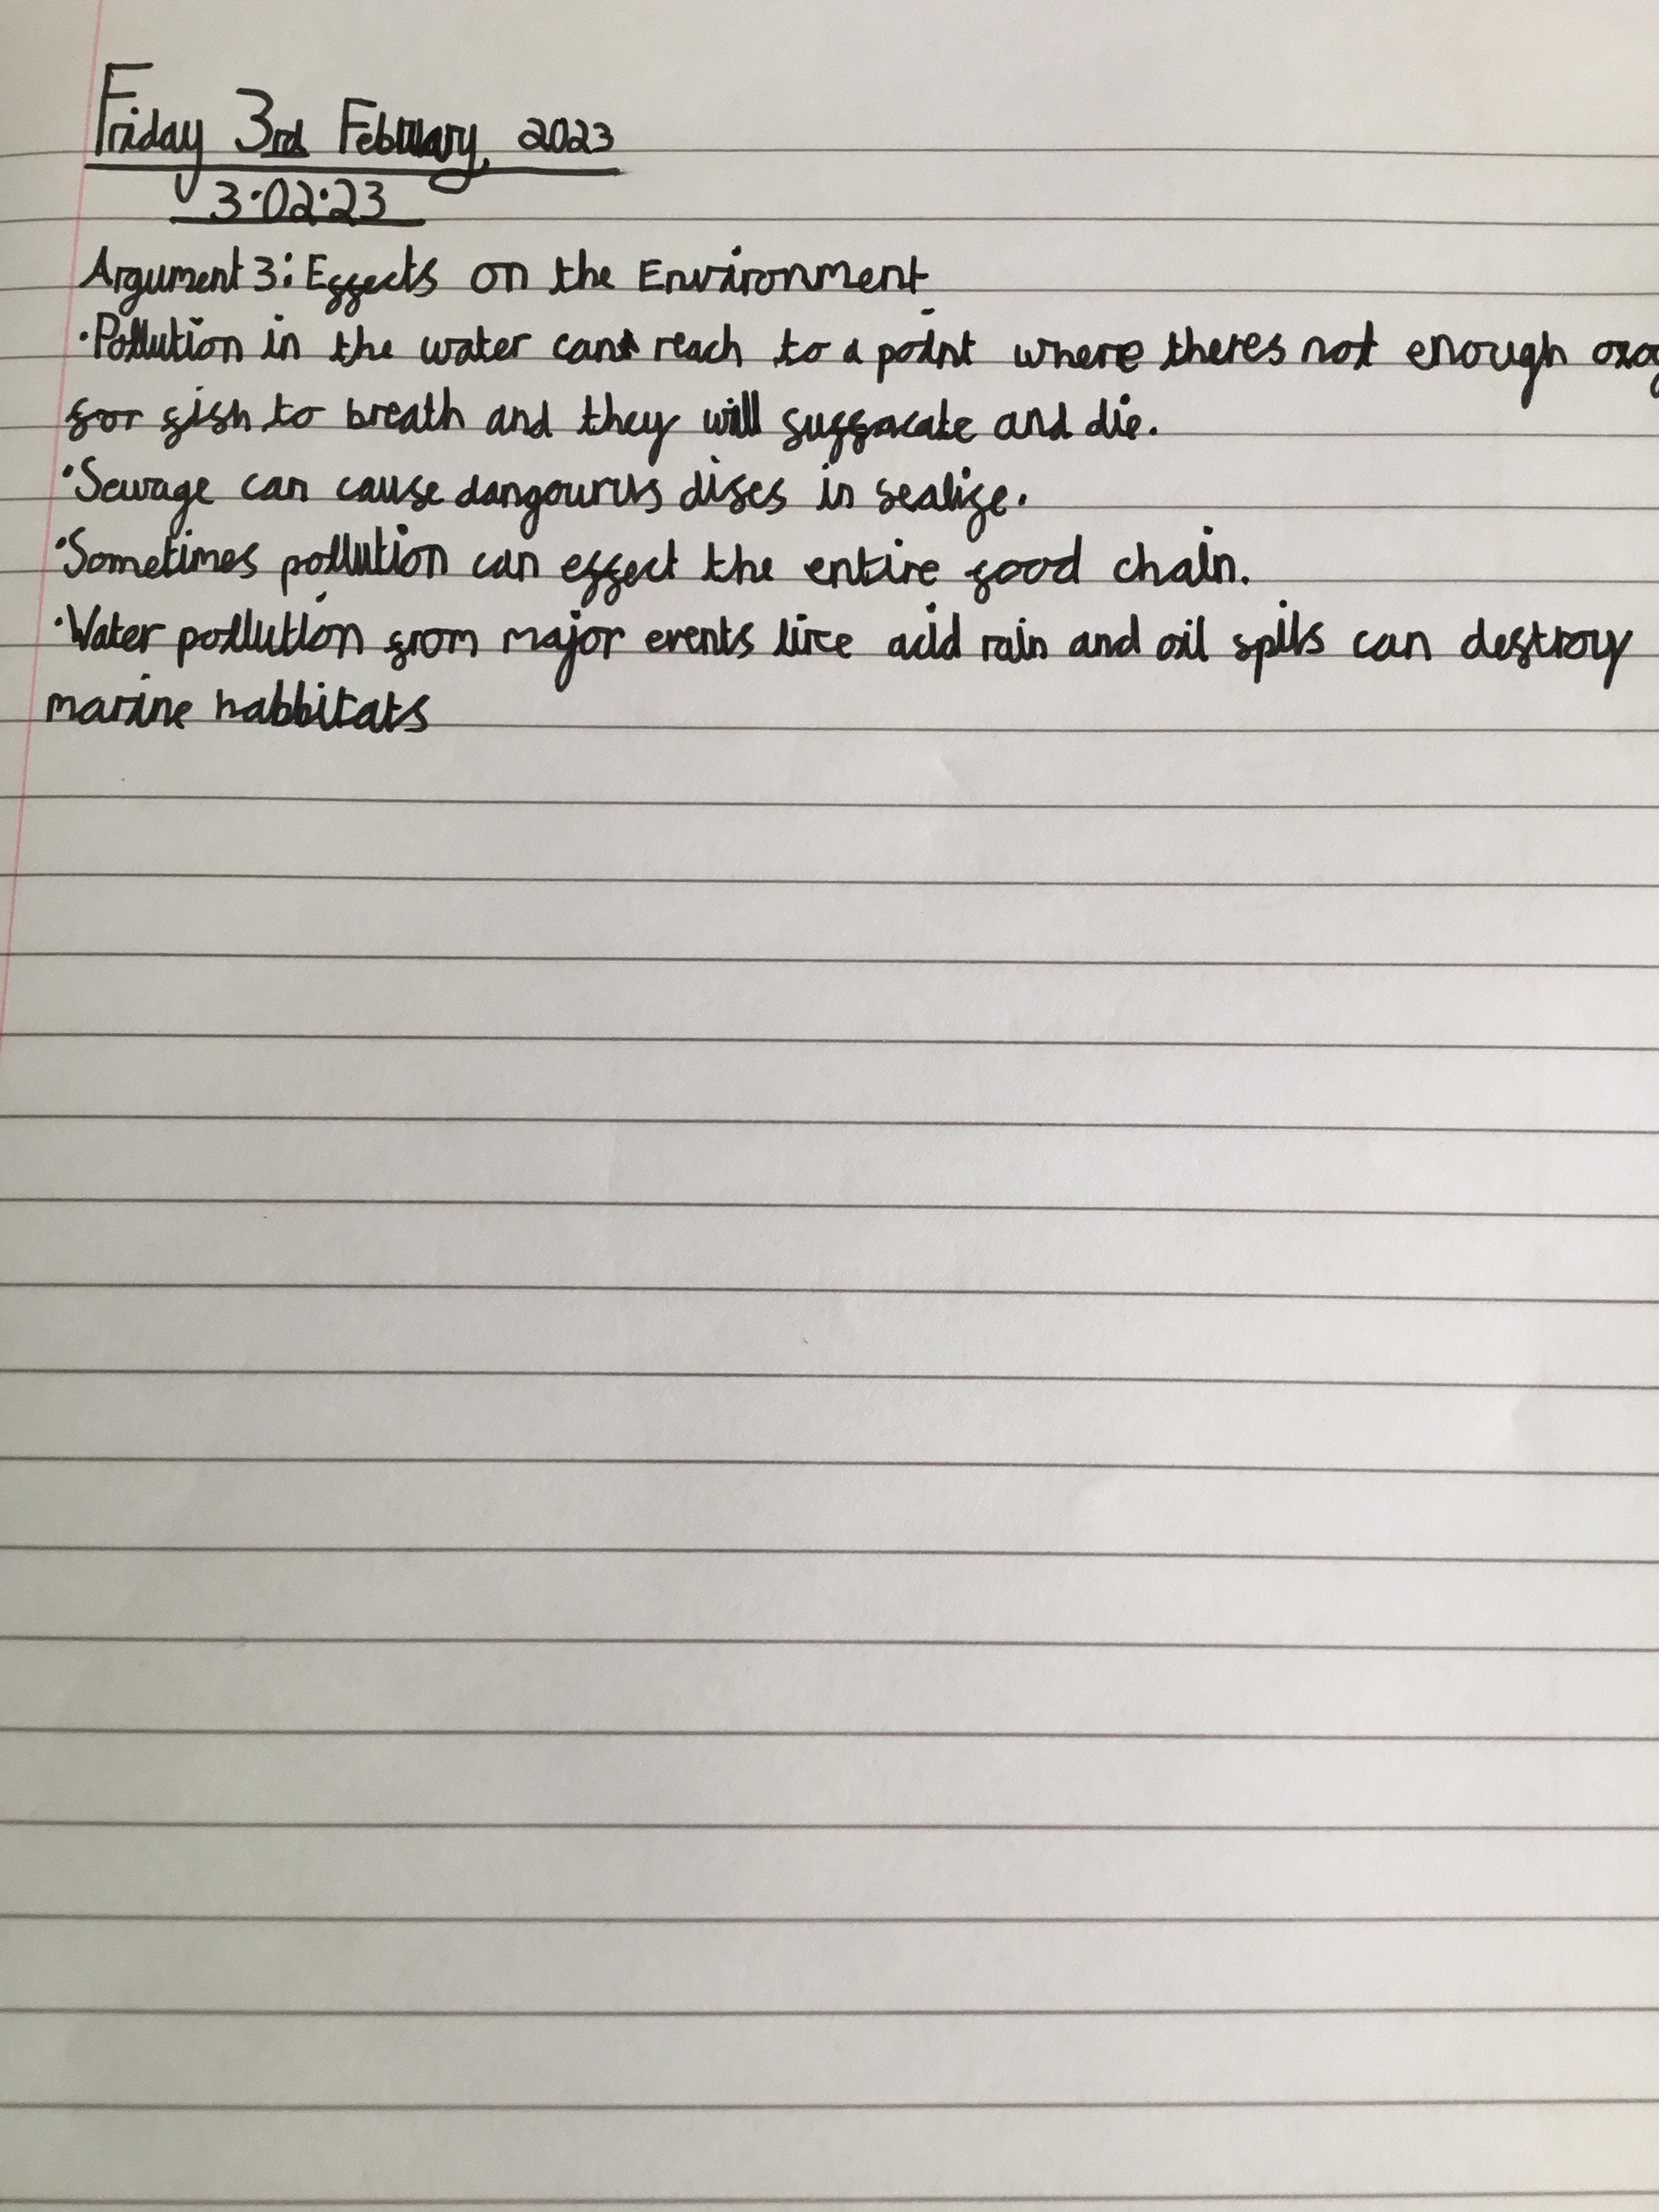 Friday 3rd February, 2023
3.02.23
Argument 3: Effects on the Environment
·Pollution in the water can reach to a point where theres not enough oxog
for fish to breath and they will suffacate and die.
·Sewage can cause dangourus dises in sealife.
·Sometimes pollution can effect the entire food chain.
·Water pollution from major events like acid rain and oil spills can destroy
marine habbitats